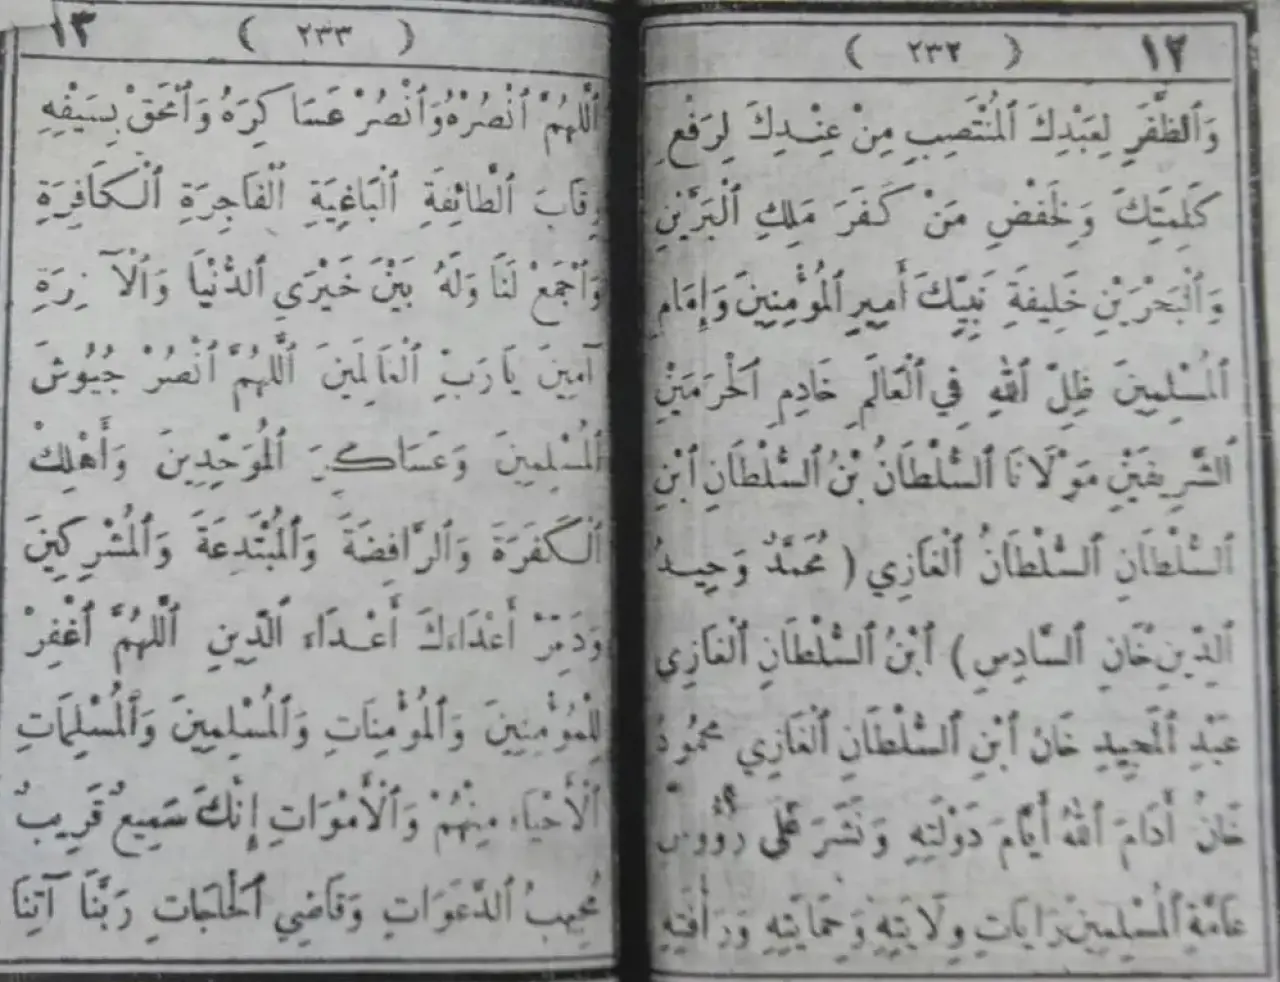 ١٢ ( ٢٣٢ )
وَالظَّفَرِ لِعَبْدِكَ الْمُنْتَصِبِ مِنْ عِنْدِكَ لِرَفْعِ
كَلِمَتِكَ وَلِخَفْضِ مَنْ كَفَرَ مَلِكِ الْبَرَّيْنِ
وَالْبَحْرَيْنِ خَلِيفَةِ نَبِيِّكَ أَمِيرِ الْمُؤْمِنِينَ وَإِمَامِ
الْمُسْلِمِينَ ظِلِّ اللهِ فِي الْعَالَمِ خَادِمِ الْحَرَمَيْنِ
الشَّرِيفَيْنِ مَوْلَانَا السُّلْطَانُ بْنُ السُّلْطَانِ ابْنِ
السُّلْطَانِ السُّلْطَانُ الْغَازِي ( مُحَمَّدٌ وَحِيدُ
الدِّينِ خَانِ السَّادِسِ ) ابْنُ السُّلْطَانِ الْغَازِي
عَبْدِ الْمَجِيدِ خَانْ ابْنِ السُّلْطَانِ الْغَازِي مَحْمُودْ
خَانْ أَدَامَ اللهُ أَيَّامَ دَوْلَتِهِ وَنَشَرَ عَلَى رُؤُوسِ
عَامَّةِ الْمُسْلِمِينَ رَايَاتِ وِلَايَتِهِ وَحِمَايَتِهِ وَرَأْفَتِهِ
١٣ ( ٢٣٣ )
اللَّهُمَّ انْصُرْهُ وَانْصُرْ عَسَاكِرَهُ وَامْحَقْ بِسَيْفِهِ
رِقَابَ الطَّائِفَةِ الْبَاغِيَةِ الْفَاجِرَةِ الْكَافِرَةِ
وَاجْمَعْ لَنَا وَلَهُ بَيْنَ خَيْرَيِ الدُّنْيَا وَالْآخِرَةِ
آمِينَ يَا رَبَّ الْعَالَمِينَ اللَّهُمَّ انْصُرْ جُيُوشَ
الْمُسْلِمِينَ وَعَسَاكِرَ الْمُوَحِّدِينَ وَأَهْلِكْ
الْكَفَرَةَ وَالرَّافِضَةَ وَالْمُبْتَدِعَةَ وَالْمُشْرِكِينَ
وَدَمِّرْ أَعْدَاءَكَ أَعْدَاءَ الدِّينِ اللَّهُمَّ اغْفِرْ
لِلْمُؤْمِنِينَ وَالْمُؤْمِنَاتِ وَالْمُسْلِمِينَ وَالْمُسْلِمَاتِ
الْأَحْيَاءِ مِنْهُمْ وَالْأَمْوَاتِ إِنَّكَ سَمِيعٌ قَرِيبٌ
مُجِيبُ الدَّعَوَاتِ وَقَاضِي الْحَاجَاتِ رَبَّنَا آتِنَا